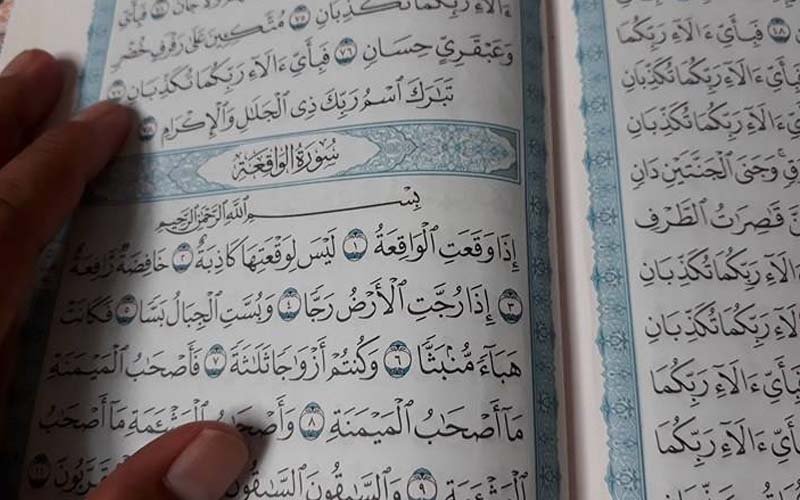 فَبِأَيِّ ءَالَآءِ رَبِّكُمَا
ءَالَآءِ رَبِّكُمَا تُكَذِّبَانِ
ءَالَآءِ رَبِّكُمَا تُكَذِّبَانِ
وَجَنَى ٱلْجَنَّتَيْنِ دَانٍ
قَٰصِرَٰتُ ٱلطَّرْفِ
ءَالَآءِ رَبِّكُمَا تُكَذِّبَانِ
ءَالَآءِ رَبِّكُمَا تُكَذِّبَانِ
فَبِأَيِّ ءَالَآءِ رَبِّكُمَا
ءَالَآءِ رَبِّكُمَا
ءَالَآءِ رَبِّكُمَا تُكَذِّبَانِ ٧٥ مُتَّكِـِٔينَ عَلَىٰ رَفْرَفٍ خُضْرٍ
وَعَبْقَرِيٍّ حِسَانٍ ٧٦ فَبِأَيِّ ءَالَآءِ رَبِّكُمَا تُكَذِّبَانِ ٧٧
تَبَٰرَكَ ٱسْمُ رَبِّكَ ذِى ٱلْجَلَٰلِ وَٱلْإِكْرَامِ ٧٨
سُورَةُ الْوَاقِعَةِ
بِسْمِ ٱللَّهِ ٱلرَّحْمَٰنِ ٱلرَّحِيمِ
إِذَا وَقَعَتِ ٱلْوَاقِعَةُ ١ لَيْسَ لِوَقْعَتِهَا كَاذِبَةٌ ٢ خَافِضَةٌ رَّافِعَةٌ
٣ إِذَا رُجَّتِ ٱلْأَرْضُ رَجًّا ٤ وَبُسَّتِ ٱلْجِبَالُ بَسًّا ٥ فَكَانَتْ
هَبَآءً مُّنۢبَثًّا ٦ وَكُنتُمْ أَزْوَٰجًا ثَلَٰثَةً ٧ فَأَصْحَٰبُ ٱلْمَيْمَنَةِ
مَآ أَصْحَٰبُ ٱلْمَيْمَنَةِ ٨ وَأَصْحَٰبُ ٱلْمَشْـَٔمَةِ مَآ أَصْحَٰبُ
ٱلْمَشْـَٔمَةِ ٩ وَٱلسَّٰبِقُونَ ٱلسَّٰبِقُونَ